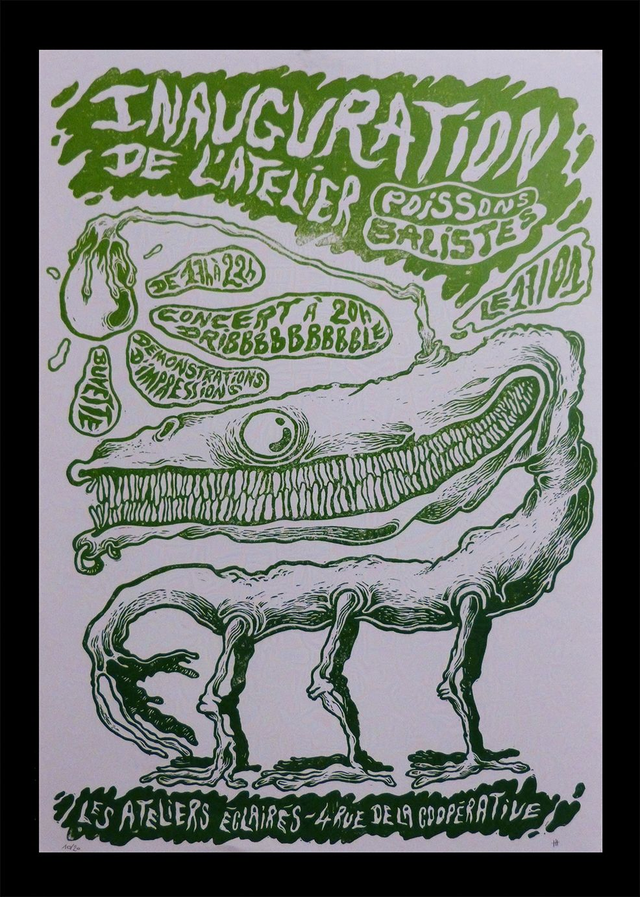 INAUGURATION
DE L'ATELIER
POISSONS
BALISTES
LE 17/01
DE 17H À 22h
CONCERT À 20H
DRIBBBBBBBBBLE
DÉMONSTRATIONS
D'IMPRESSIONS
BUVETTE
LES ATELIERS ÉCLAIRÉS ~ 4 RUE DE LA COOPÉRATIVE